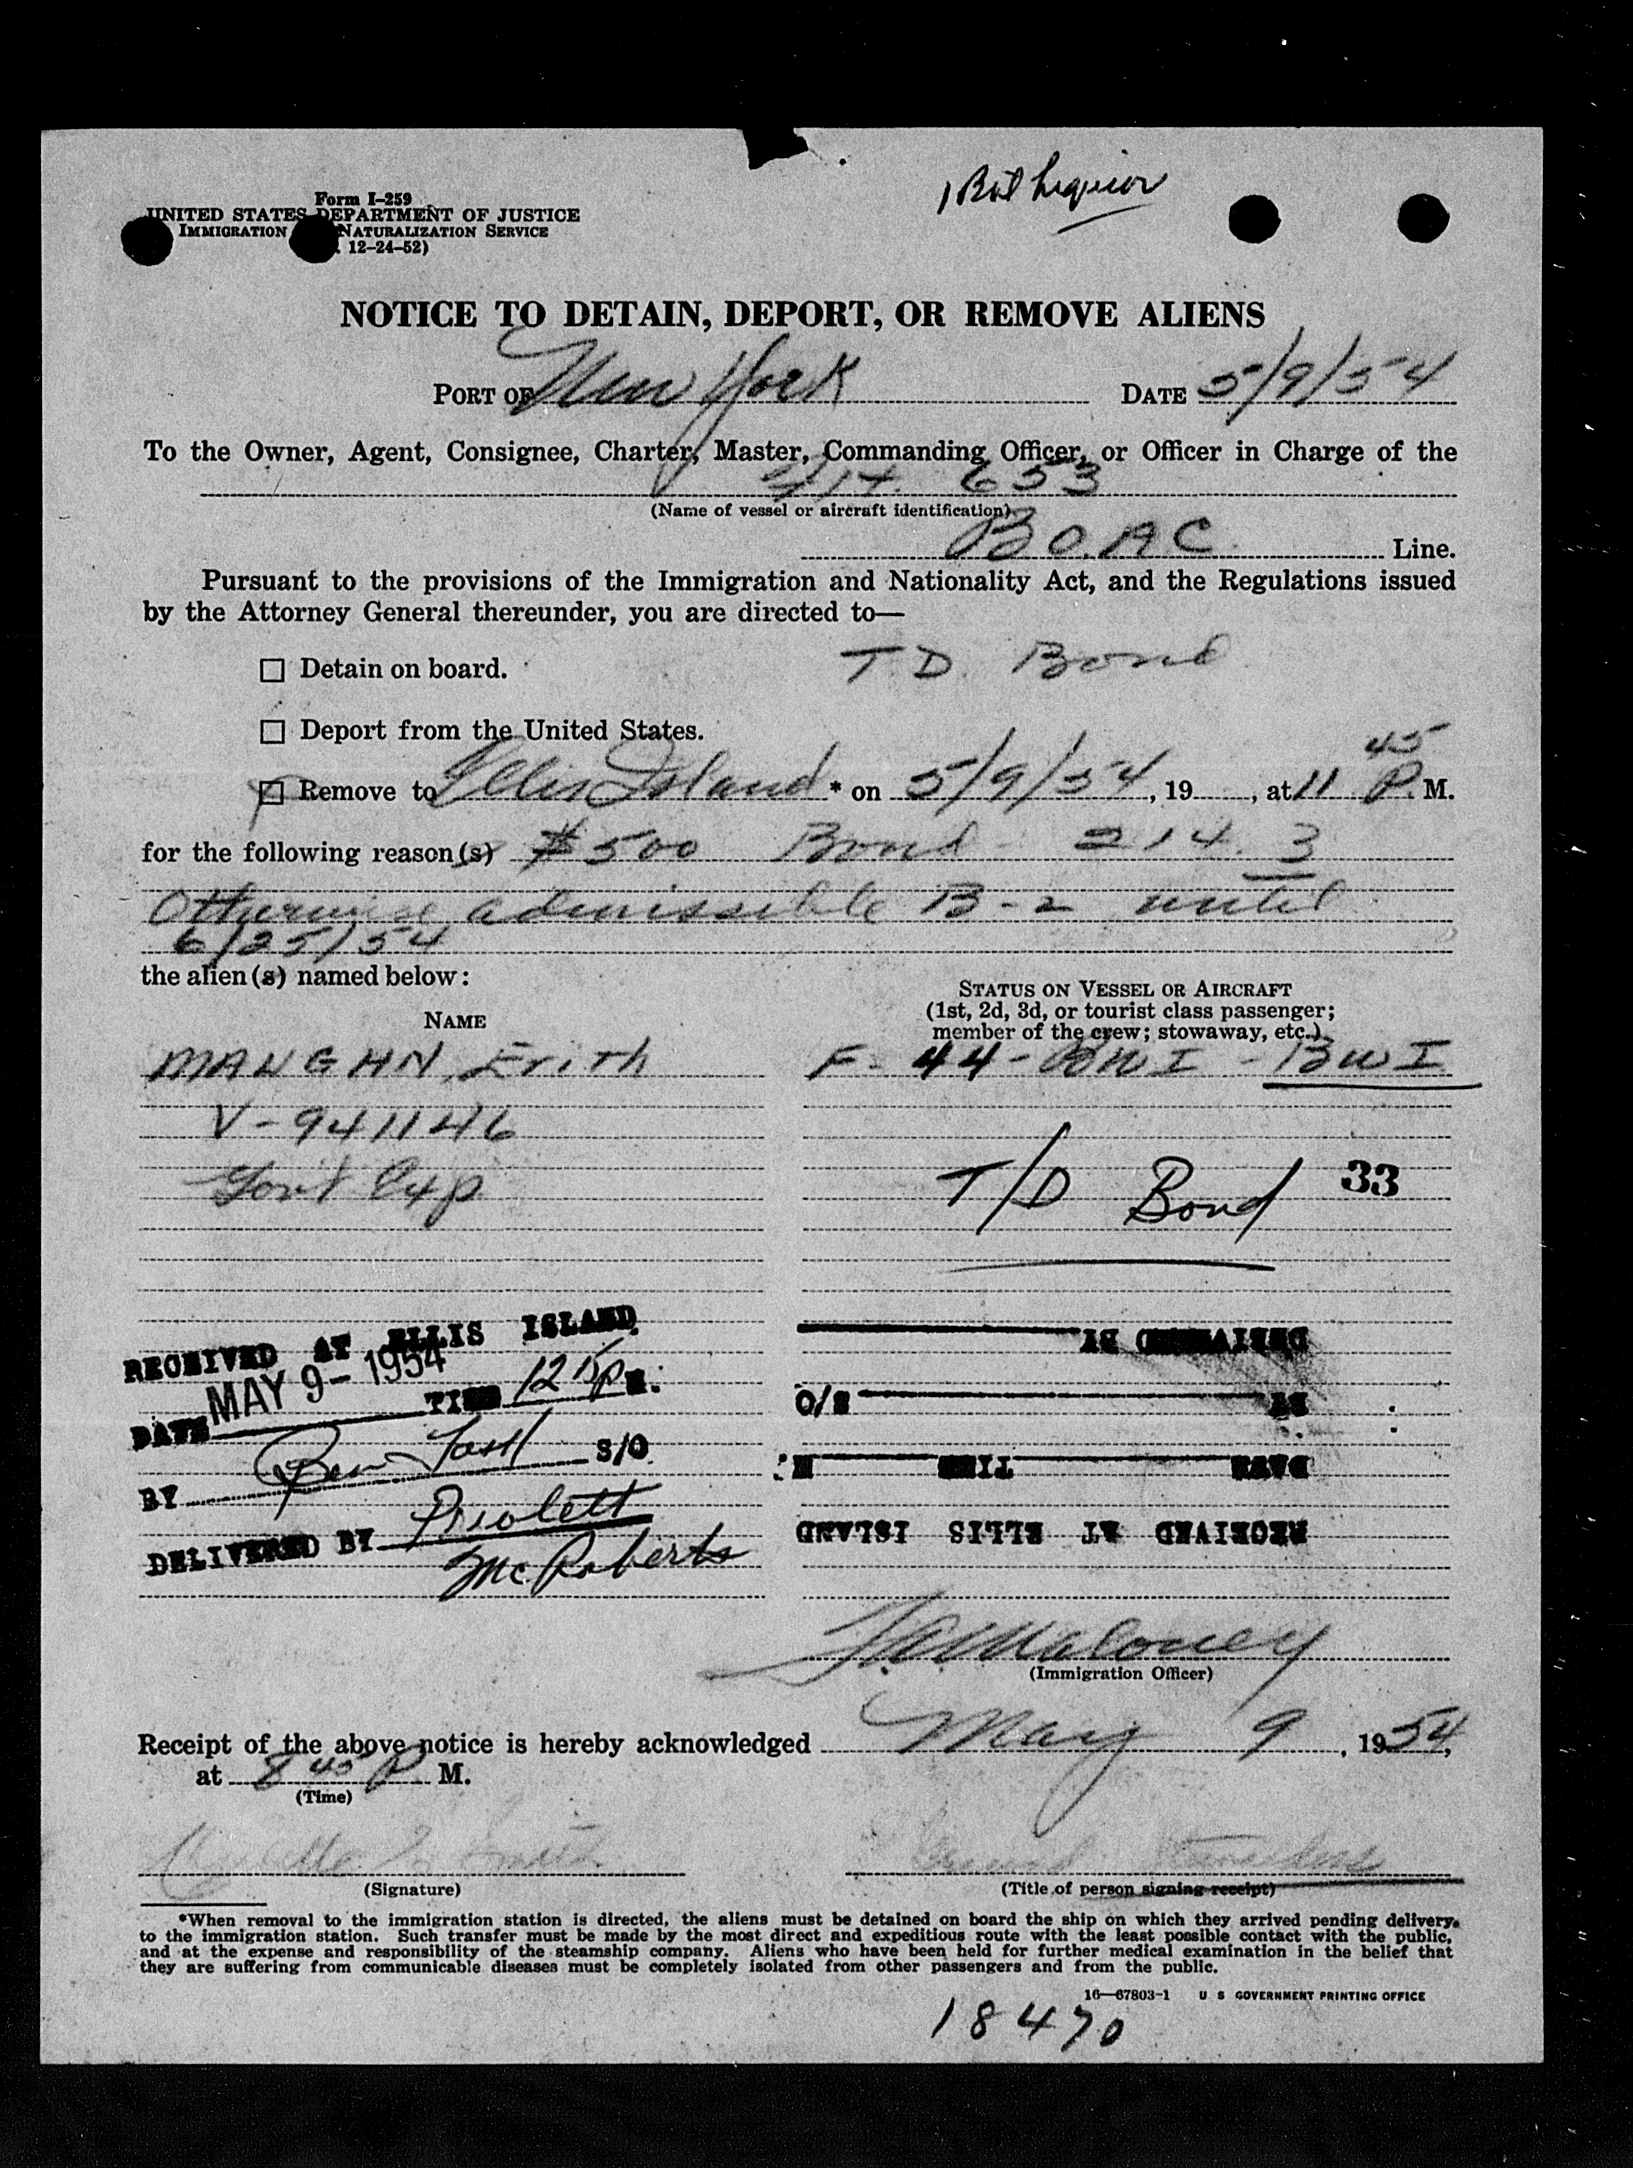 Form I-259
UNITED STATES DEPARTMENT OF JUSTICE
IMMIGRATION NATURALIZATION SERVICE
12-24-52)
1 Bot Liquior
NOTICE TO DETAIN, DEPORT, OR REMOVE ALIENS
PORT OF New York DATE 5/9/54
To the Owner, Agent, Consignee, Charter, Master, Commanding Officer, or Officer in Charge of the
Flt. 653
(Name of vessel or aircraft identification)
B.O.A.C. Line.
Pursuant to the provisions of the Immigration and Nationality Act, and the Regulations issued
by the Attorney General thereunder, you are directed to—
☐ Detain on board. T.D. Bond
☐ Deport from the United States.
☐ Remove to Ellis Island * on 5/9/54, 19, at 11 45 P. M.
for the following reason(s) $500 Bond 214.3
Otherwise admissible B-2 until
6/25/54
the alien(s) named below:
NAME
STATUS ON VESSEL OR AIRCRAFT
(1st, 2d, 3d, or tourist class passenger;
member of the crew; stowaway, etc.)
MAUGHN, Erith F- 44- BWI - BWI
V-941146
Gov't Exp
T/D Bond 33
RECEIVED AT ELLIS ISLAND
DATE MAY 9- 1954 TIME 12 15 P M.
BY Ben S/O
DELIVERED BY
McRoberts
DELIVERED BY
BY S/O
DATE TIME M.
RECEIVED AT ELLIS ISLAND
Maloney
(Immigration Officer)
Receipt of the above notice is hereby acknowledged May 9, 1954,
at 8 45 P M.
(Time)
Smith
(Signature)
(Title of person signing receipt)
*When removal to the immigration station is directed, the aliens must be detained on board the ship on which they arrived pending delivery,
to the immigration station. Such transfer must be made by the most direct and expeditious route with the least possible contact with the public,
and at the expense and responsibility of the steamship company. Aliens who have been held for further medical examination in the belief that
they are suffering from communicable diseases must be completely isolated from other passengers and from the public.
16—67803-1 U S GOVERNMENT PRINTING OFFICE
18470